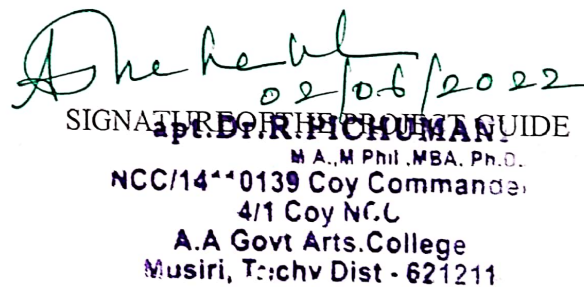 02/06/2022
SIGNATURE OF THE PROJECT GUIDE
apt.Dr.R.PICHUMAN
M A.,M Phil .MBA. Ph.D.
NCC/14 0139 Coy Commande
4/1 Coy
A.A Govt Arts.College
Musiri, Dist - 621211